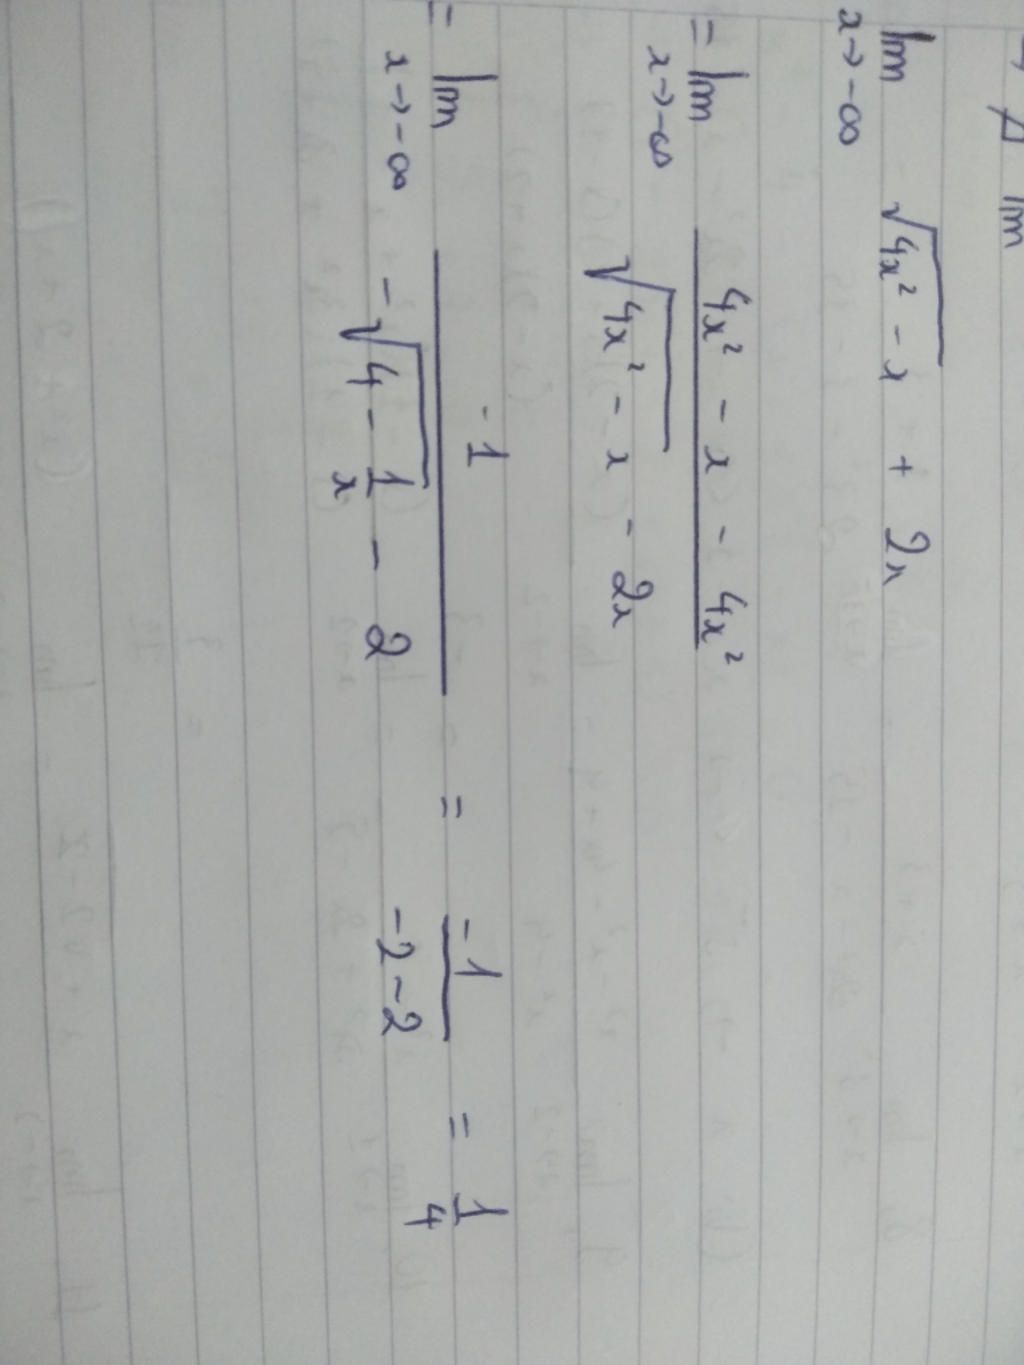 lim
lim x→-∞ √(4x² - x) + 2x
= lim x→-∞ (4x² - x - 4x²) / (√(4x² - x) - 2x)
= lim x→-∞ -1 / (-√(4 - 1/x) - 2) = -1 / (-2-2) = 1/4